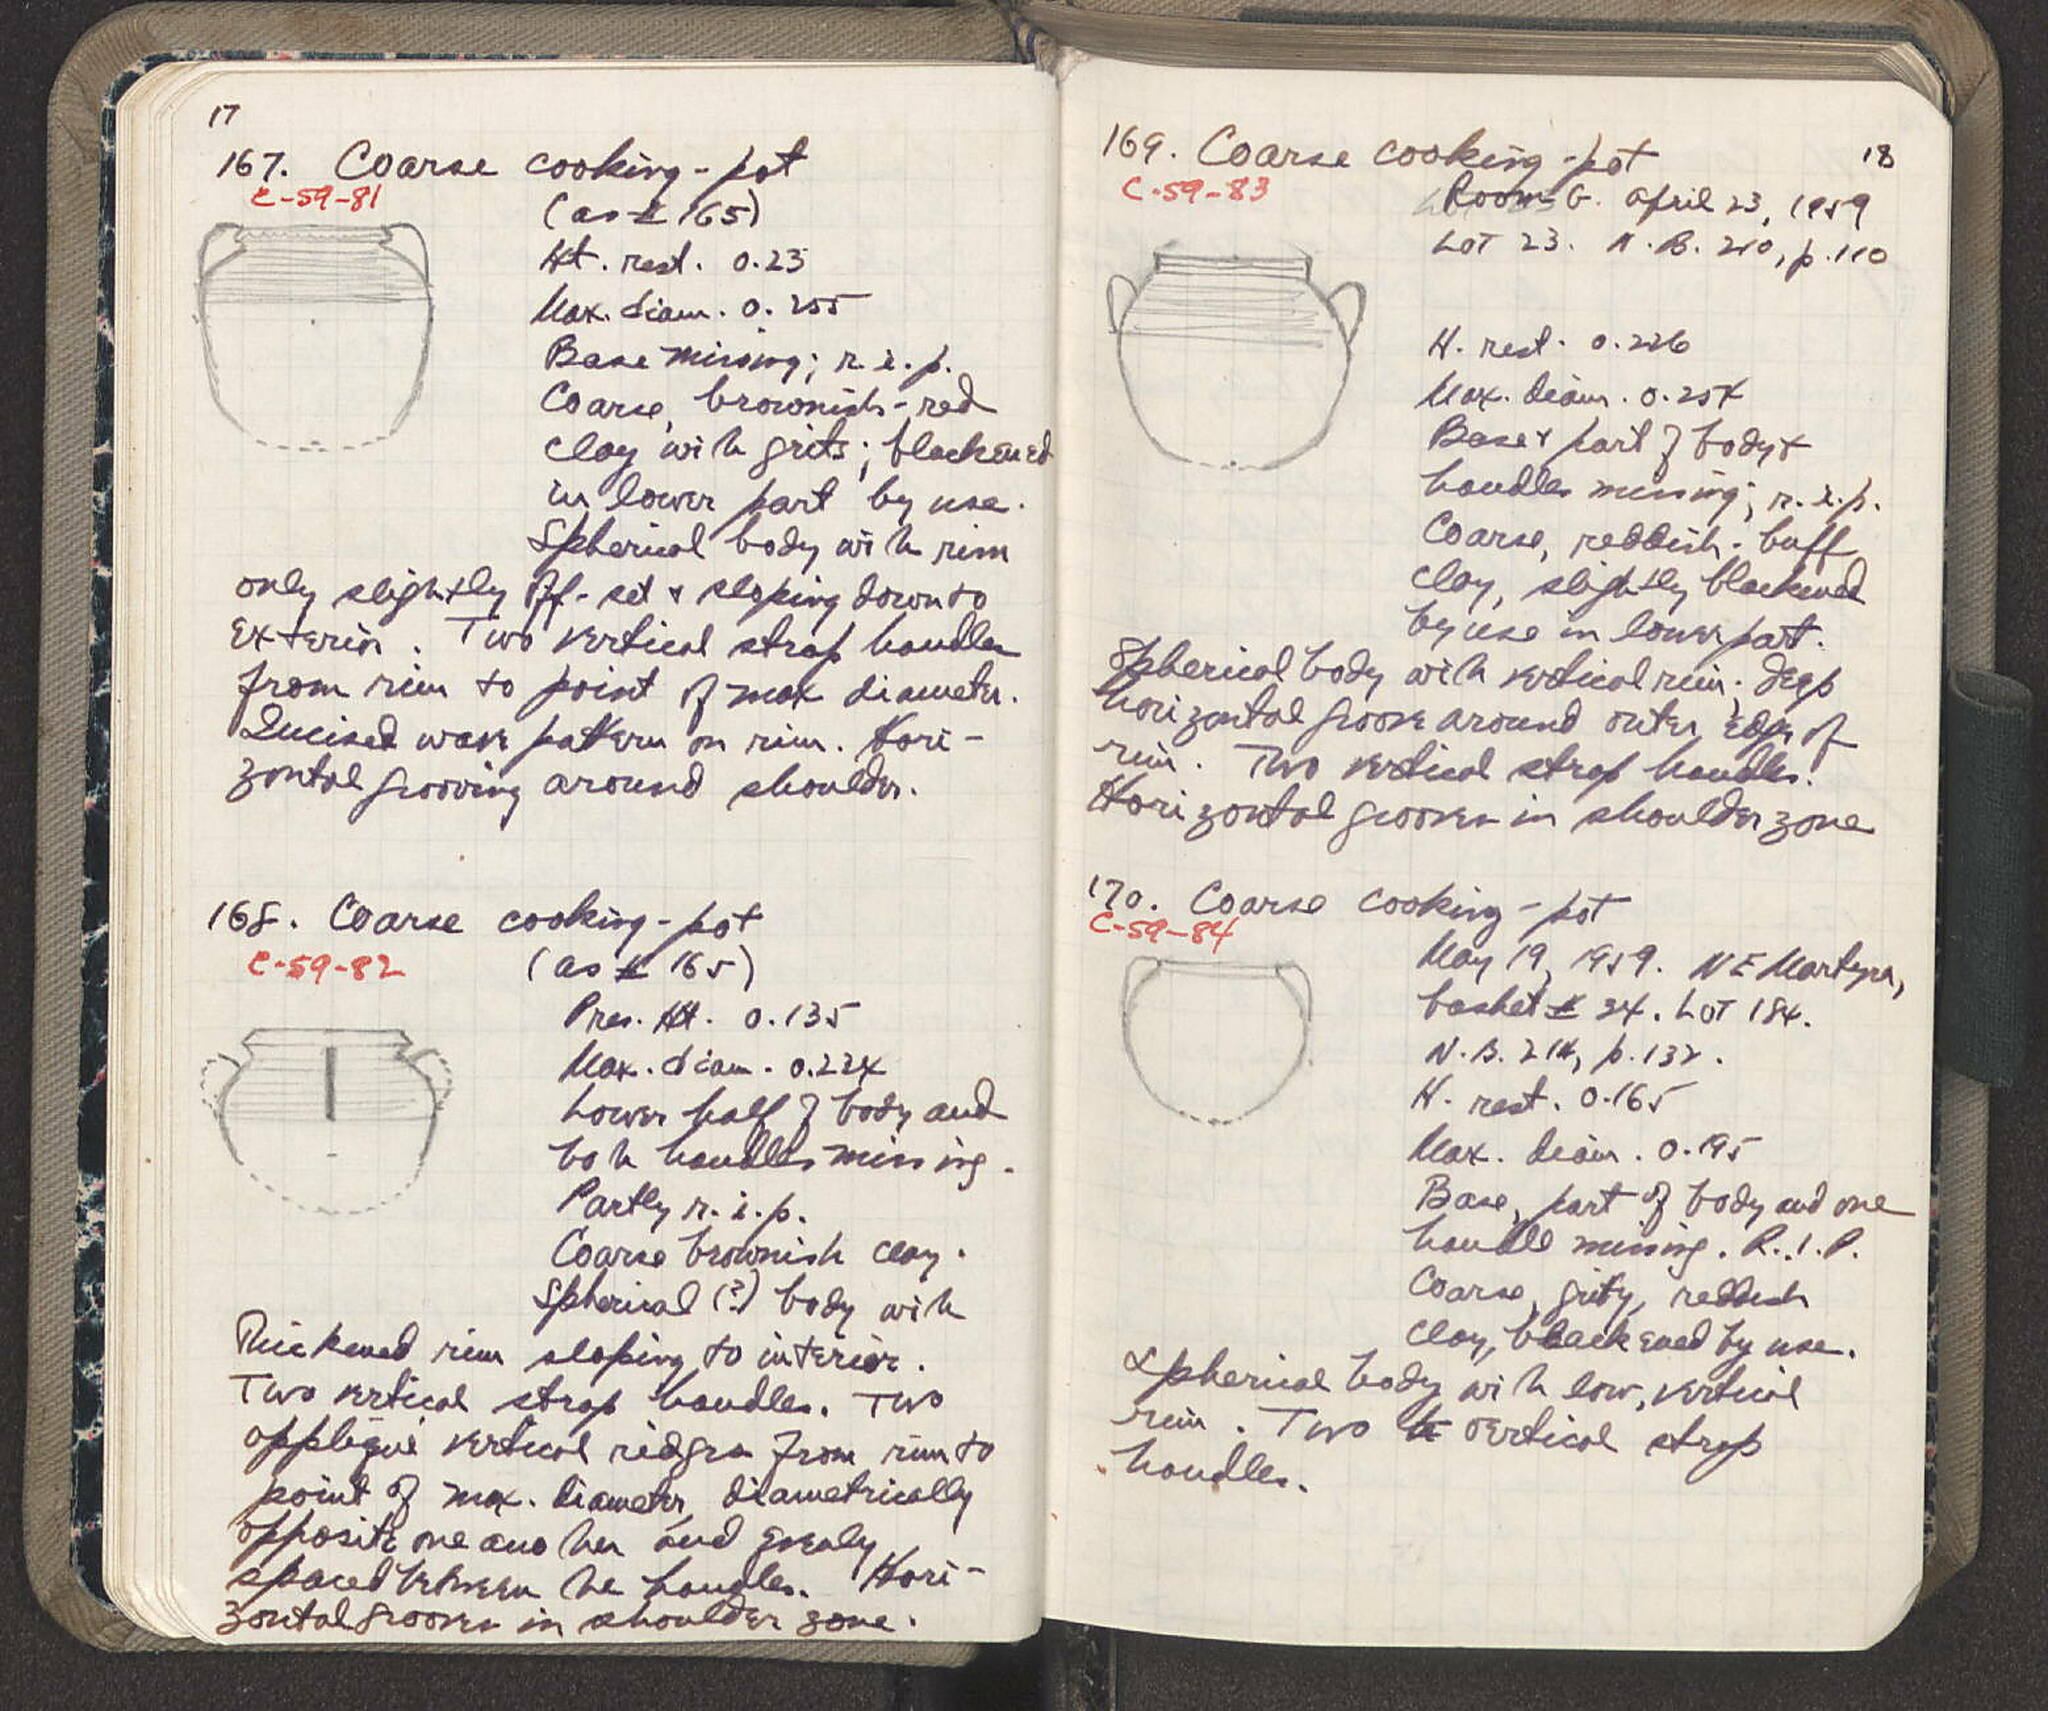 17
167. Coarse cooking-pot
C-59-81
(as # 165)
Ht. rest. 0.23
Max. diam. 0.255
Base missing; r.i.p.
Coarse, brownish-red
clay with grits; blackened
in lower part by use.
Spherical body with rim
only slightly off-set & sloping down to
exterior. Two vertical strap handles
from rim to point of max diameter.
Incised wave pattern on rim. Hori-
zontal grooving around shoulder.
168. Coarse cooking-pot
C-59-82
(as # 165)
Pres. Ht. 0.135
Max. diam. 0.224
Lower half of body and
both handles missing.
Partly r.i.p.
Coarse brownish clay.
Spherical (?) body with
Thickened rim sloping to interior.
Two vertical strap handles. Two
appliqué vertical ridges from rim to
point of max. diameter, diametrically
opposite one another and evenly
spaced between the handles. Hori-
zontal grooves in shoulder zone.
18
169. Coarse cooking-pot
C-59-83
Room G. April 23, 1959
Lot 23. N.B. 210, p.110
H. rest. 0.226
Max. diam. 0.254
Base & part of body &
handles missing; r.i.p.
Coarse, reddish-buff
clay, slightly blackened
by use in lower part.
Spherical body with vertical rim; deep
horizontal groove around outer edge of
rim. Two vertical strap handles.
Horizontal grooves in shoulder zone
170. Coarse cooking-pot
C-59-84
May 19, 1959. NE Martyra,
basket # 34. Lot 184.
N.B. 214, p.132.
H. rest. 0.165
Max. diam. 0.195
Base, part of body and one
handle missing. R.I.P.
Coarse, gritty, reddish
clay, blackened by use.
Spherical body with low, vertical
rim. Two vertical strap
handles.